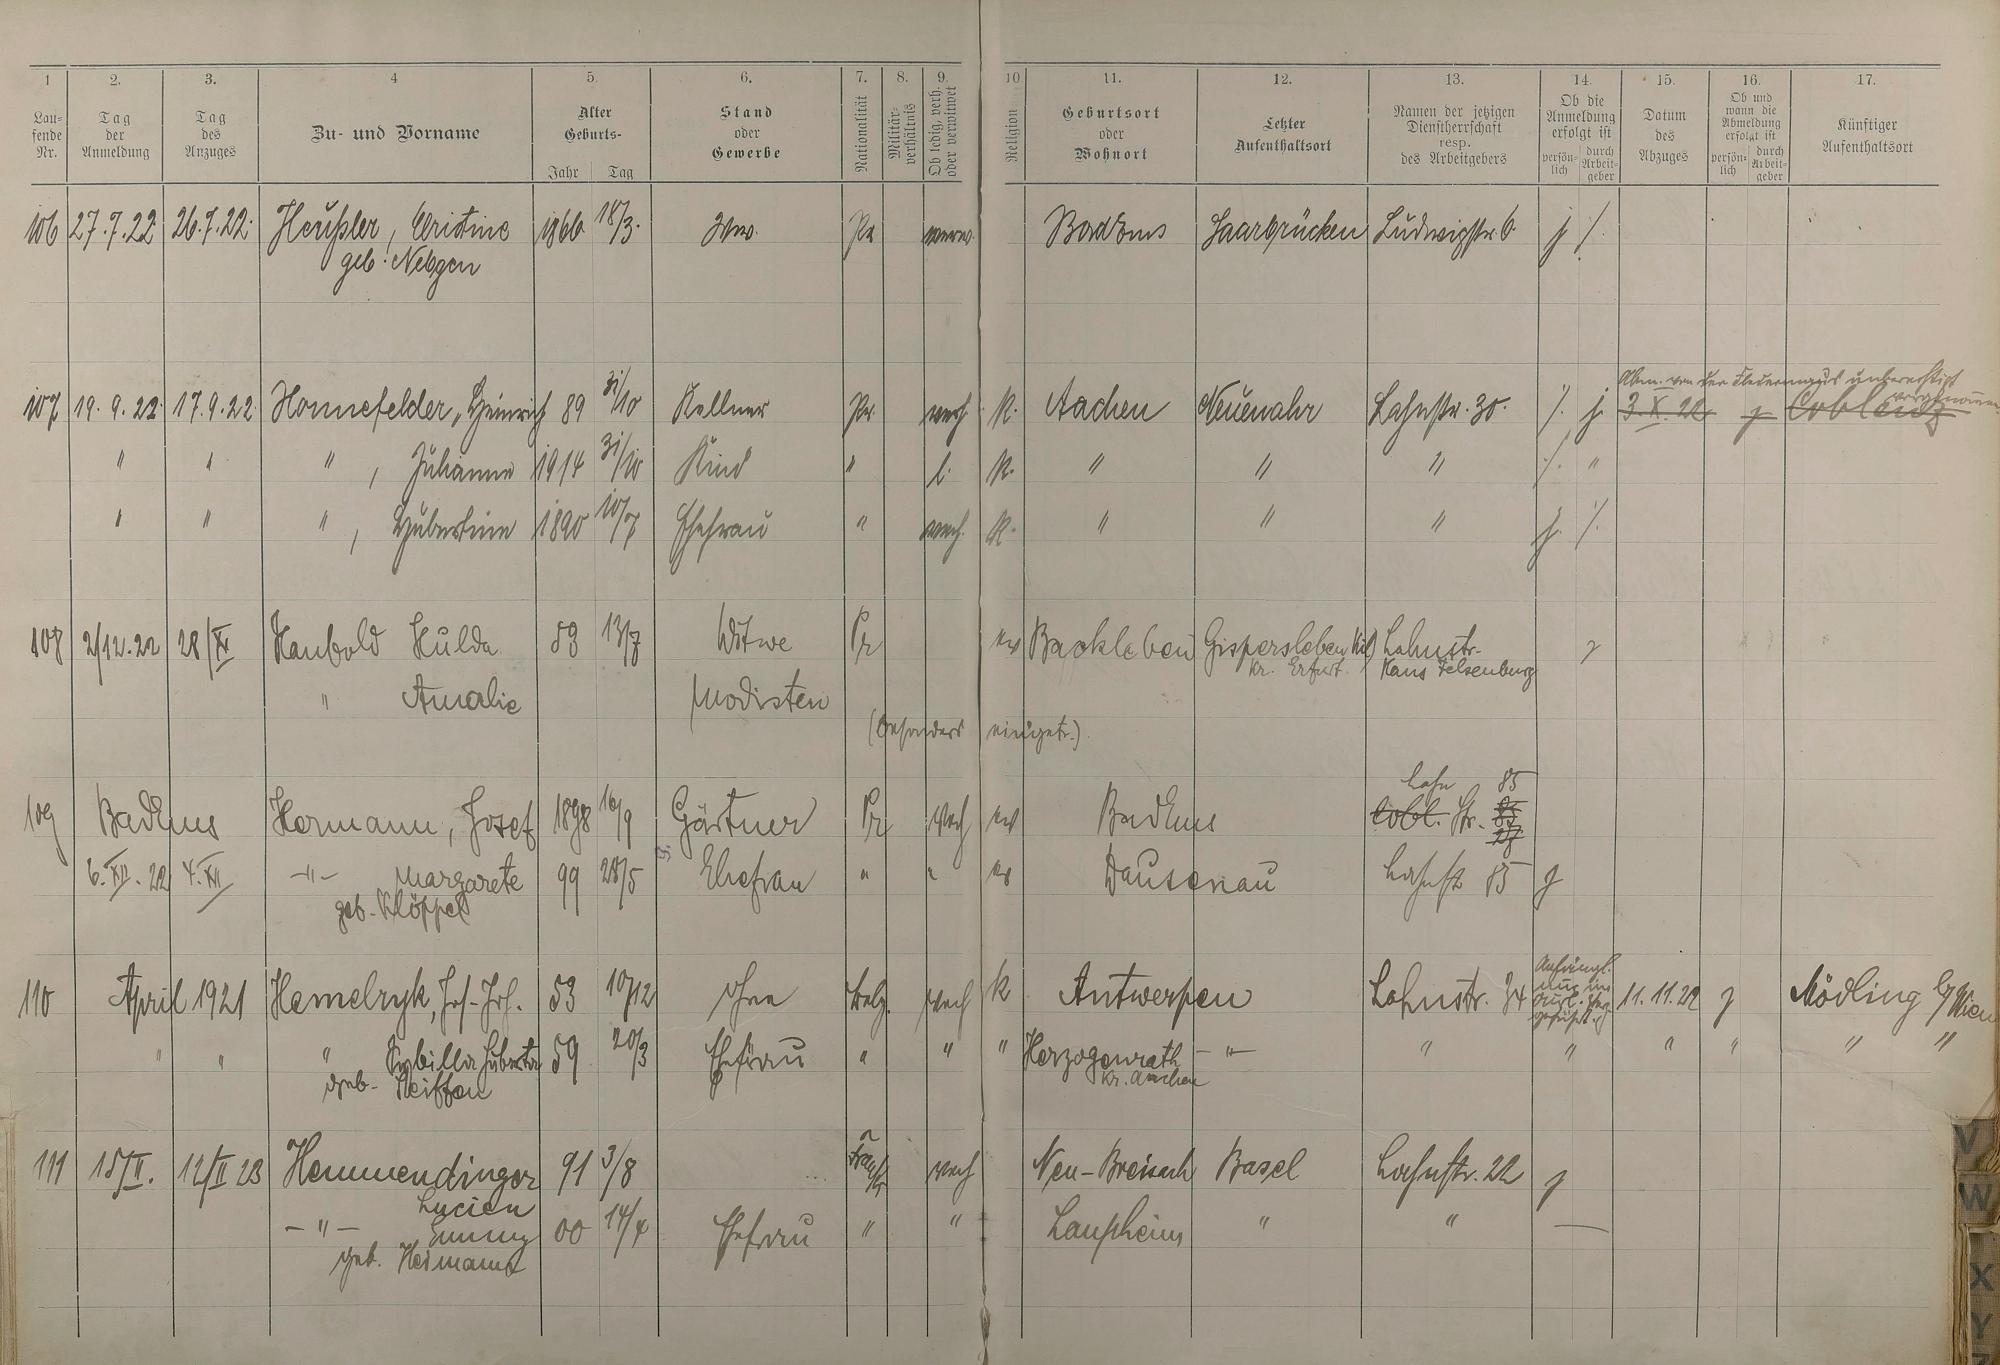 1 2. 3. 4 5. 6. 7. 8. 9. 10 11. 12. 13. 14. 15. 16. 17.
Lau-
fende
Nr.
Tag
der
Anmeldung
Tag
des
Anzuges
Zu- und Vorname
Alter
Geburts-
Jahr Tag
Stand
oder
Gewerbe
Nationalität
Militär-
verhältnis
Ob ledig, verh.
oder verwitwet
Religion
Geburtsort
oder
Wohnort
Letzter
Aufenthaltsort
Namen der jetzigen
Dienstherrschaft
resp.
des Arbeitgebers
Ob die
Anmeldung
erfolgt ist
persön-
lich
durch
Arbeit-
geber
Datum
des
Abzuges
Ob und
wann die
Abmeldung
erfolgt ist
persön-
lich
durch
Arbeit-
geber
Künftiger
Aufenthaltsort
106 27.7.22 26.7.22. Heußler, Cristine 1866 18/3. Ww. Pr verw. Bad Ems Saarbrücken Ludwigstr. 6. j /.
geb. Nebgen
Abm. von der unberechtigt
107 19.9.22 17.9.22 Honnefelder, Heinrich 89 31/10 Kellner Pr. verh. K. Aachen Neuenahr Lahnstr. 30. /. j 3.X.22 j Coblenz
" " " , Julianne 1914 31/10 Kind " l. K. " " " /. "
" " " , Hubertine 1890 10/7 Ehefrau " verh. K. " " " j. /.
108 2/12.22 28/XI Haubold Hulda 53 13/7 Witwe Pr ev Backleben Gispersleben Kil. Lahnstr. j
Kr. Erfurt. Haus Felsenburg
" Amalie Modisten
(besonders eingetr.)
Lahn 85
109 Bad Ems Hermann, Josef 1898 16/9 Gärtner Pr verh ev Bad Ems Cobl. Str.
6.XII.22 4.XII -"- Margarete 99 28/5 Ehefrau " " ev Dausenau Lahnstr 85 j
geb. Klöppel
110 April 1921 Hamelryk, Jos-Joh. 53 10/12 ohne Belg. verh k Antwerpen Lahnstr. 34 11.11.22 j Mödling b/Wien
" " " Sybilla Huberta 59 20/3 Ehefrau " " " Herzogenrath -"- " " " " " "
geb. Kr. Aachen
111 15/II. 12/II 23 Hemmendinger 91 3/8 verh Neu-Breisach Basel Lahnstr. 22 j
Lucien
-"- Emmy 00 14/4 Ehefrau " " Laupheim " " —
geb. Heimann
V
W
X
Y
Z